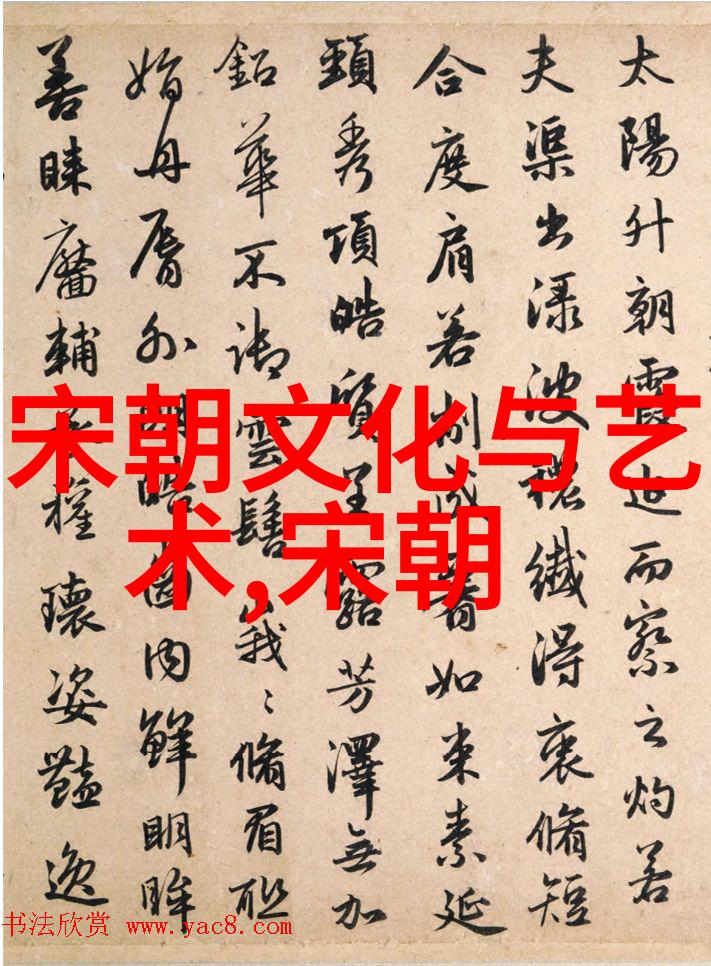 太陽升朝霞迫而察之灼若
夫渠出渌波穠纖得衷脩短
合度肩若削成如束素延
頸秀項皓質呈露芳澤無加
鉛華不御雲髻峩〻脩眉聯
娟丹脣外朗皓齒内鮮明眸
善睞靨輔承權瓌姿豔逸
宋朝文化与艺
术,宋朝
书法欣赏 www.yac8.com